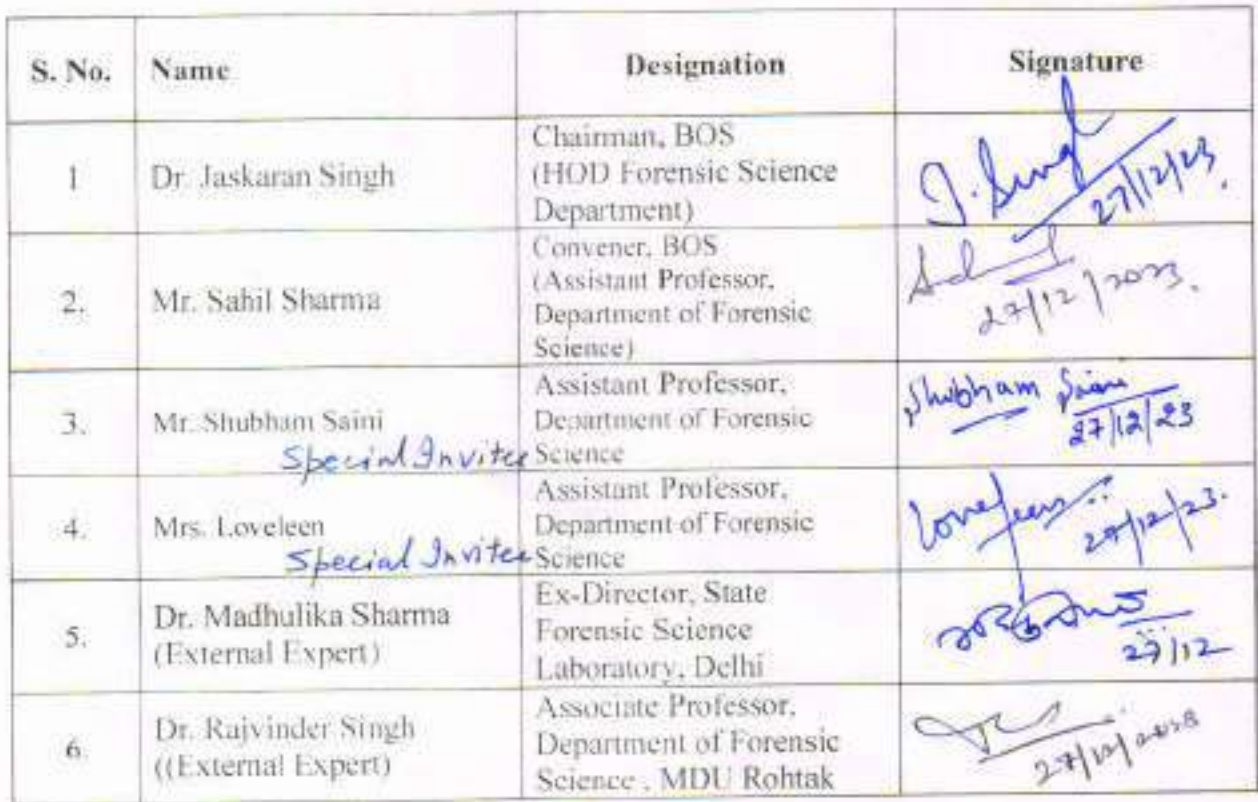 S. No. Name Designation Signature
1 Dr. Jaskaran Singh
Chairman, BOS
(HOD Forensic Science
Department)
J. Singh
27/12/23.
2. Mr. Sahil Sharma
Convener, BOS
(Assistant Professor,
Department of Forensic
Science)
27/12/2023.
3. Mr. Shubham Saini
Special Invitee
Assistant Professor,
Department of Forensic
Science
Shubham Saini
27/12/23
4. Mrs. Loveleen
Special Invitee
Assistant Professor,
Department of Forensic
Science
Loveleen
27/12/23.
5. Dr. Madhulika Sharma
(External Expert)
Ex-Director, State
Forensic Science
Laboratory, Delhi
27/12
6. Dr. Rajvinder Singh
((External Expert)
Associate Professor,
Department of Forensic
Science , MDU Rohtak
27/12/2023